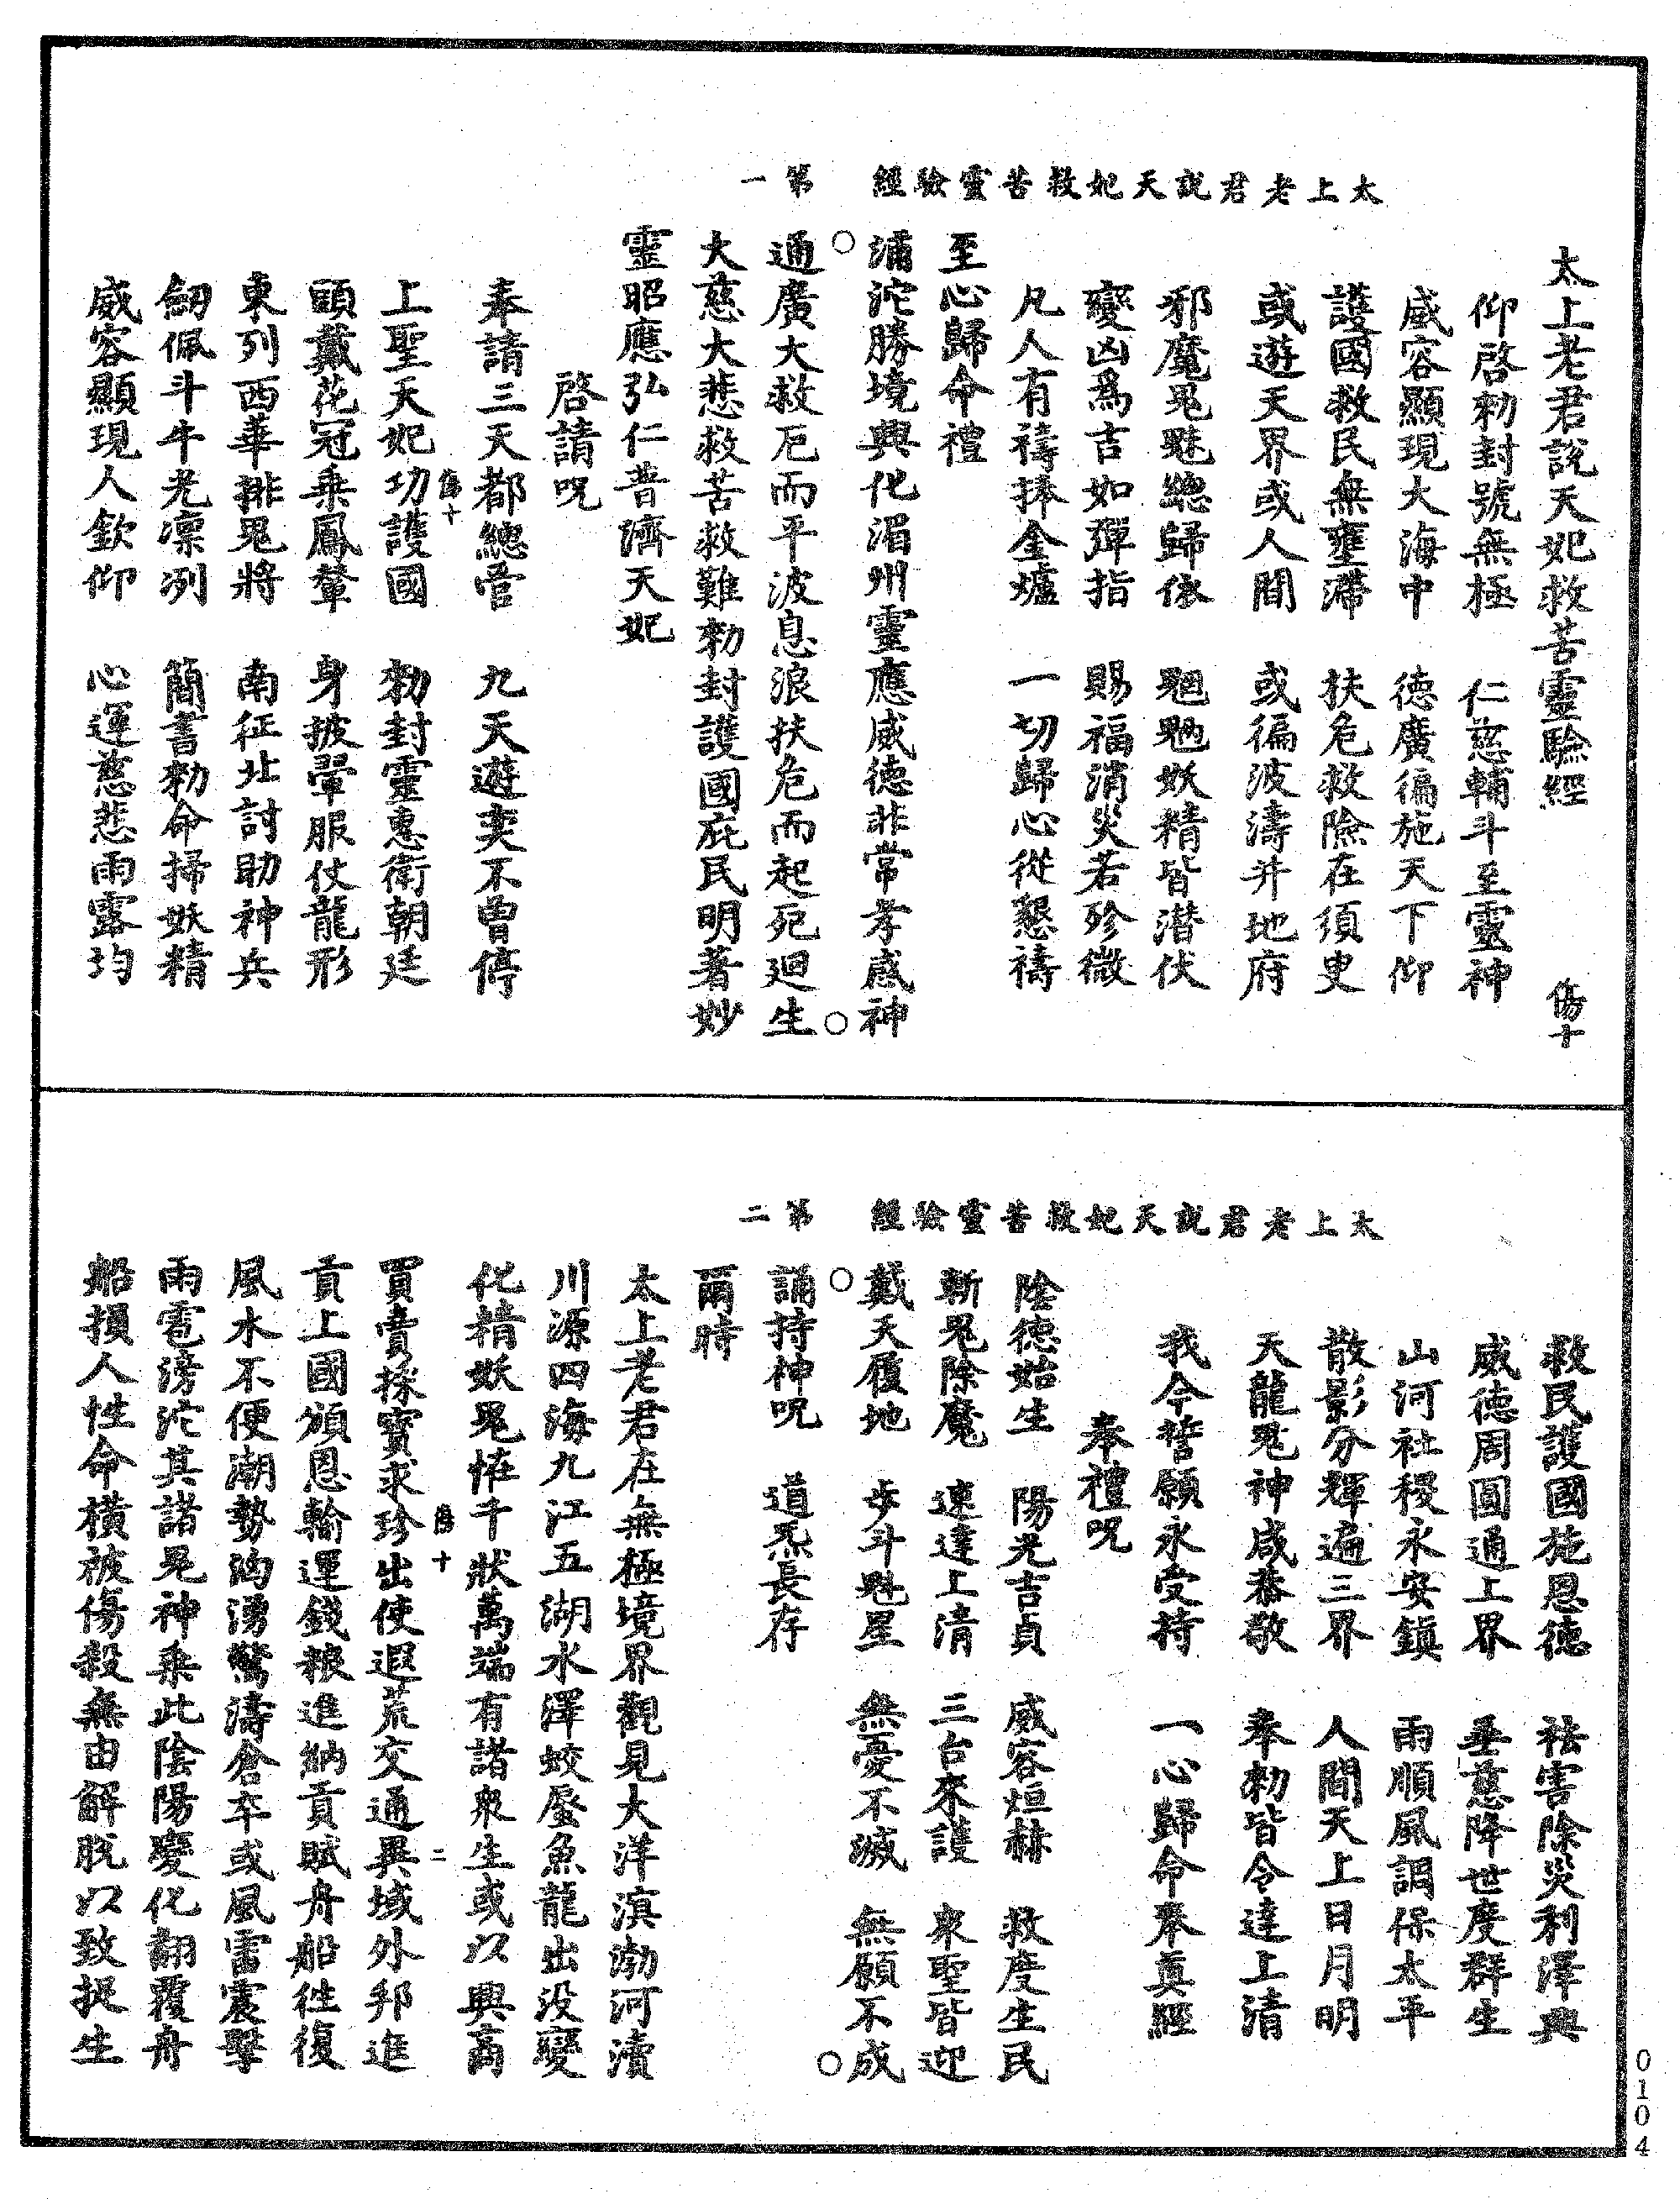 太上老君說天妃救苦靈驗經　第一
太上老君說天妃救苦靈驗經　傷十
仰啓勑封號無極　仁慈輔斗至靈神
威容顯現大海中　德廣徧施天下仰
護國救民無壅滯　扶危救險在須臾
或遊天界或人間　或徧波濤并地府
邪魔鬼魅總歸依　魍魎妖精皆潛伏
變凶爲吉如彈指　賜福消災若殄微
凡人有禱捧金爐　一切歸心從懇禱
至心歸命禮
浦沱勝境興化湄州靈應威德非常孝感神
通廣大救厄而平波息浪扶危而起死迴生
大慈大悲救苦救難勑封護國庇民明著妙
靈昭應弘仁普濟天妃
啓請呪
奉請三天都總管　九天遊奕不曾停
上聖天妃功護國　勑封靈惠衛朝廷
傷十
頭戴花冠乘鳳輦　身披翬服仗龍形
東列西華排鬼將　南征北討助神兵
劒佩斗牛光凛冽　簡書勑命掃妖精
威容顯現人欽仰　心運慈悲雨露均
太上老君說天妃救苦靈驗經　第二
救民護國施恩德　祛害除災利澤興
威德周圓通上界　垂慈降世度群生
山河社稷永安鎮　雨順風調保太平
散影分輝遍三界　人間天上日月明
天龍鬼神咸恭敬　奉勑皆令達上清
我今誓願永受持　一心歸命奉真經
奉禮呪
陰德始生　陽光吉貞　威容烜赫　救度生民
斬鬼除魔　速達上清　三台來護　衆聖皆迎
戴天履地　步斗魁星　無憂不滅　無願不成
誦持神呪　道炁長存
爾時
太上老君在無極境界觀見大洋溟渤河瀆
川源四海九江五湖水澤蛟蜃魚龍出没變
化精妖鬼恠千狀萬端有諸衆生或以興商
買賣採寶求珍出使遐荒交通異域外邦進
傷十　二
貢上國頒恩輸運錢粮進納貢賦舟船往復
風水不便潮勢洶湧驚濤倉卒或風雷震擊
雨雹滂沱其諸鬼神乘此陰陽變化翻覆舟
船損人性命橫被傷殺無由解脱以致捉生
0104